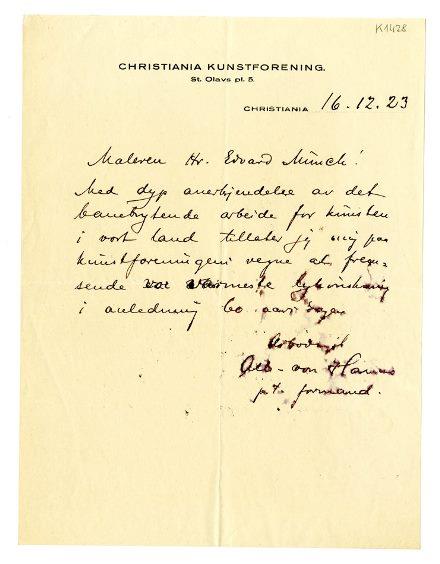 K1428
CHRISTIANIA KUNSTFORENING.
St. Olavs pl. 5.
CHRISTIANIA 16.12.23
Maleren Hr. Edvard Munch!
Med dyp anerkjendelse av det
banebrytende arbeide for kunsten
i vort land tillater jeg mig paa
kunstforeningens vegne at frem-
sende vor varmeste lykønskning
i anledning 60 aars dagen
Ærbødigst
Alb. von Hanno
p.t. formand.